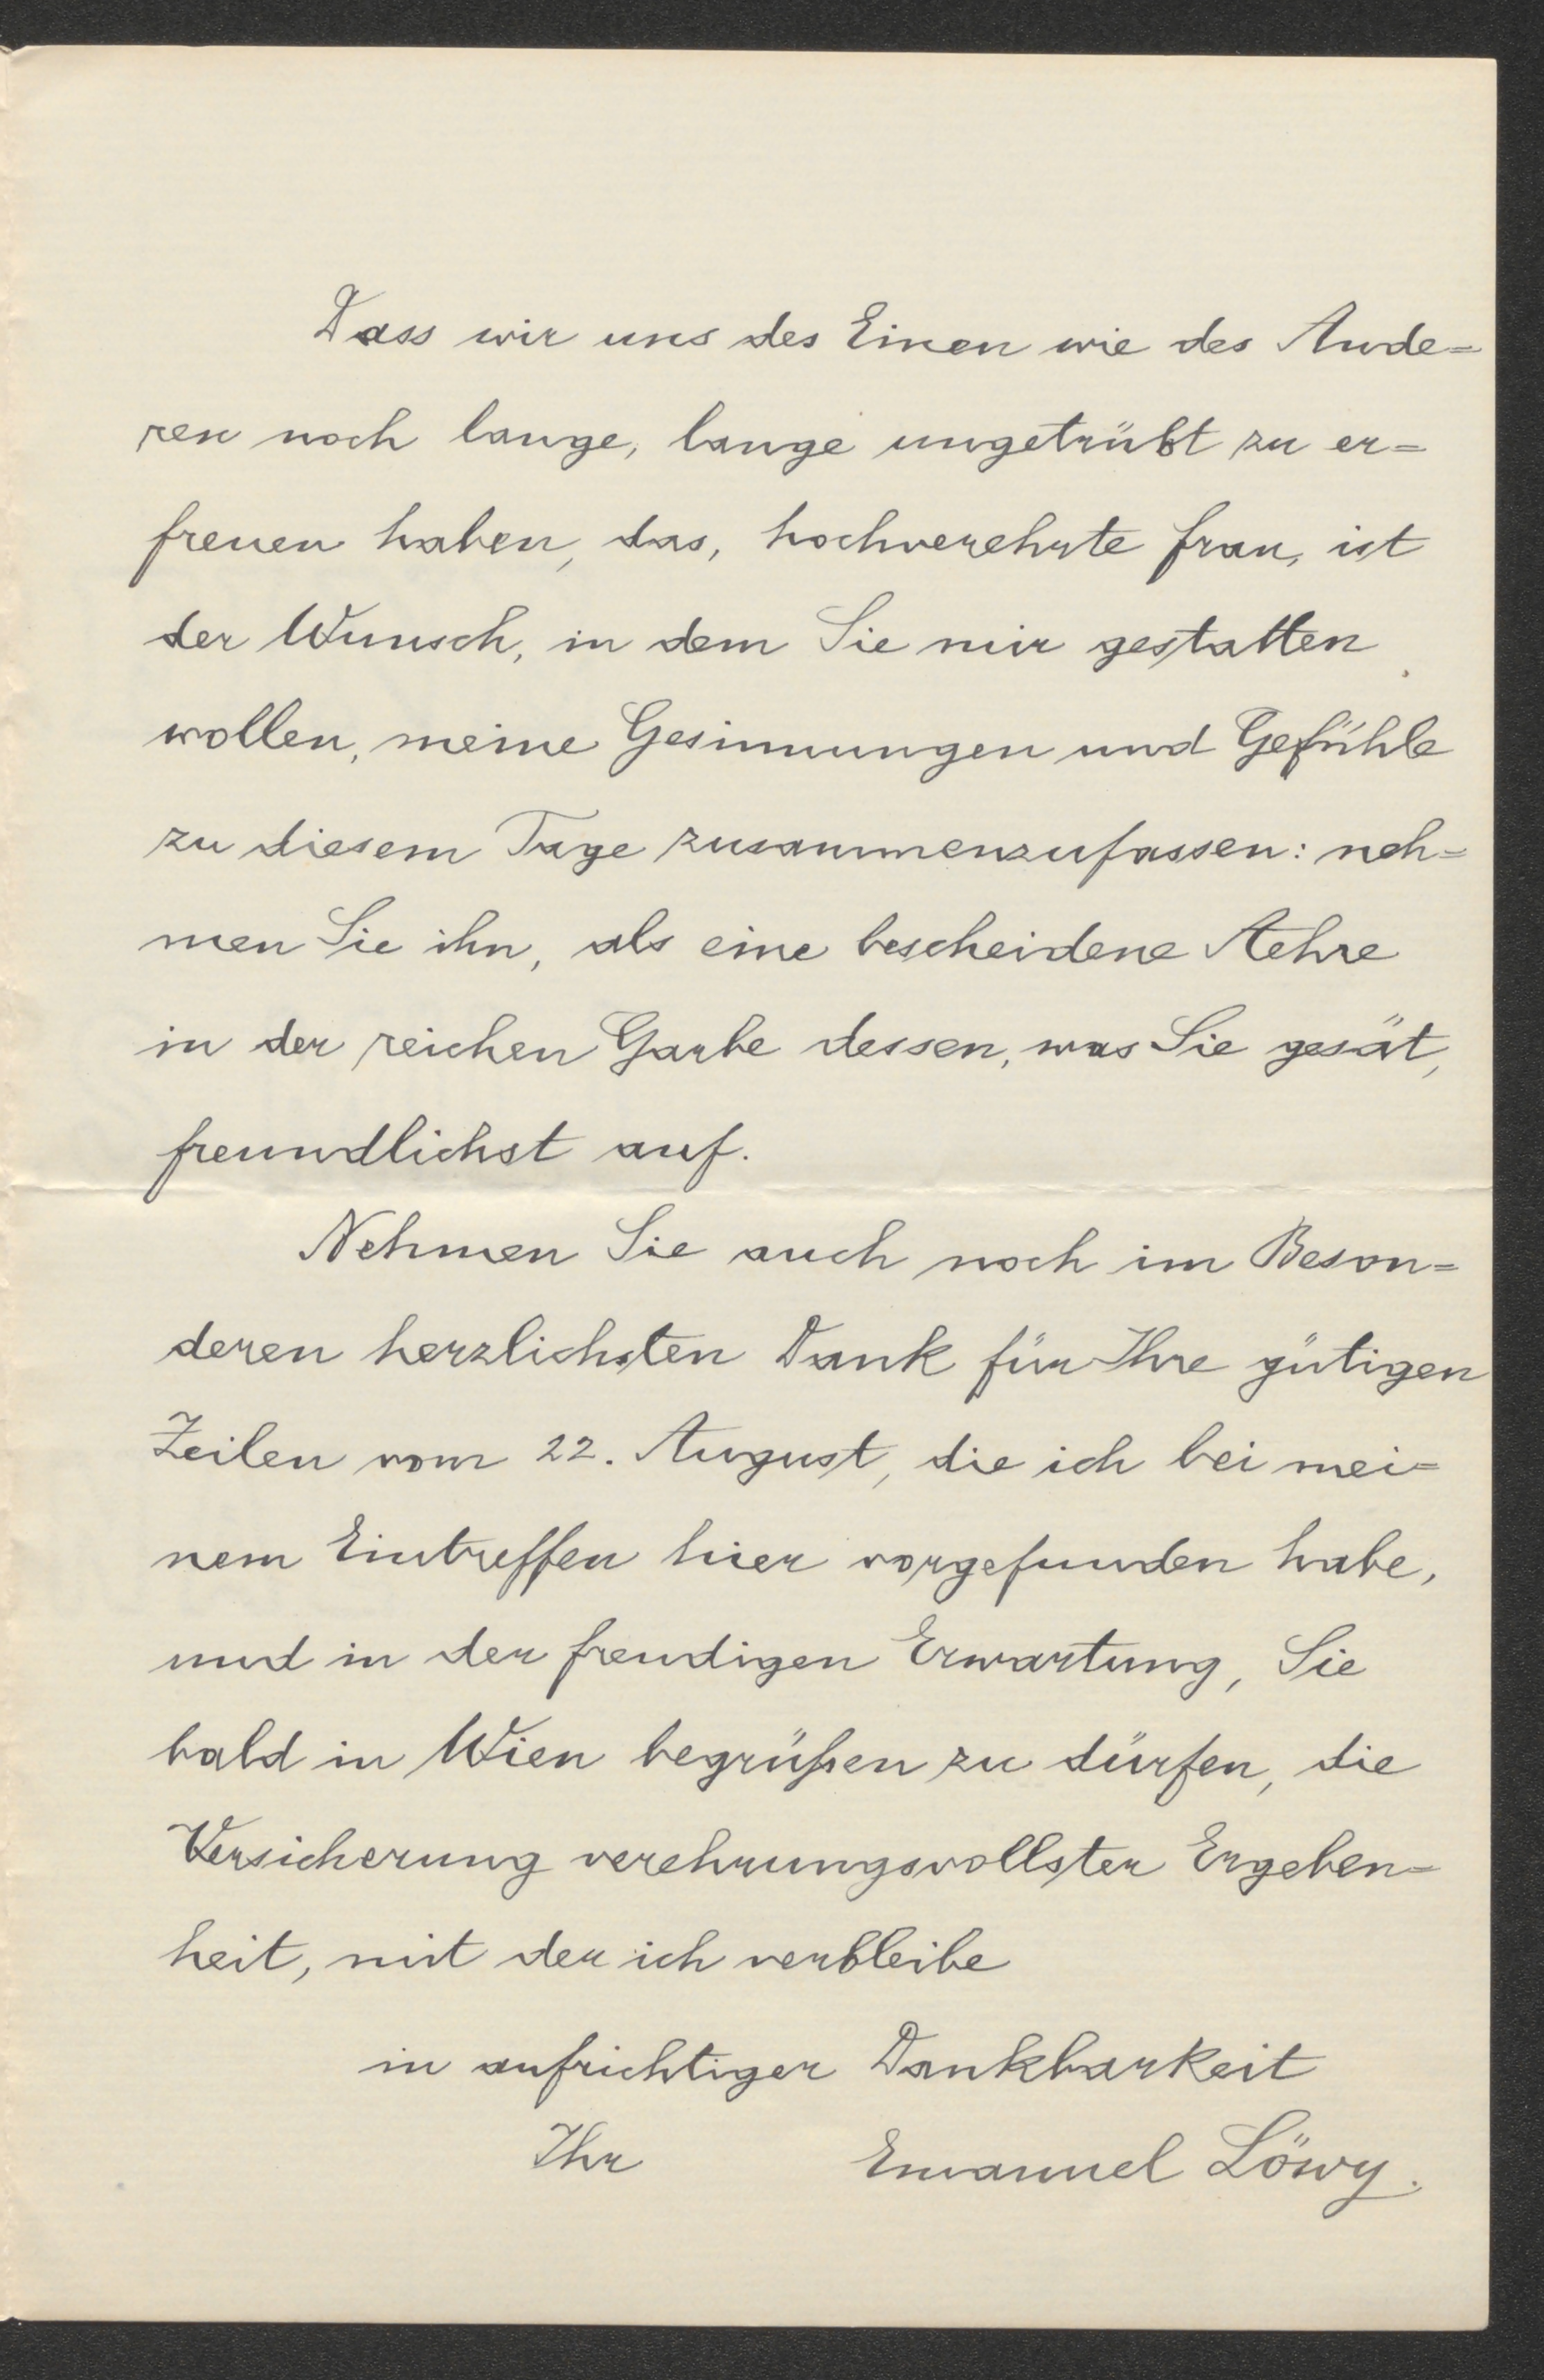 Dass wir uns des Einen wie des Ande=
ren noch lange, lange ungetrübt zu er=
freuen haben, das, hochverehrte Frau, ist
der Wunsch, in dem Sie mir gestatten
wollen, meine Gesinnungen und Gefühle
zu diesem Tage zusammenzufassen: neh=
men Sie ihn, als eine bescheidene Aehre
in der reichen Garbe dessen, was Sie gesät,
freundlichst auf.
Nehmen Sie auch noch im Beson=
deren herzlichsten Dank für Ihre gütigen
Zeilen vom 22. August, die ich bei mei=
nem Eintreffen hier vorgefunden habe,
und in der freudigen Erwartung, Sie
bald in Wien begrüßen zu dürfen, die
Versicherung verehrungsvollster Ergeben=
heit, mit der ich verbleibe
in aufrichtiger Dankbarkeit
Ihr Emanuel Löwy.